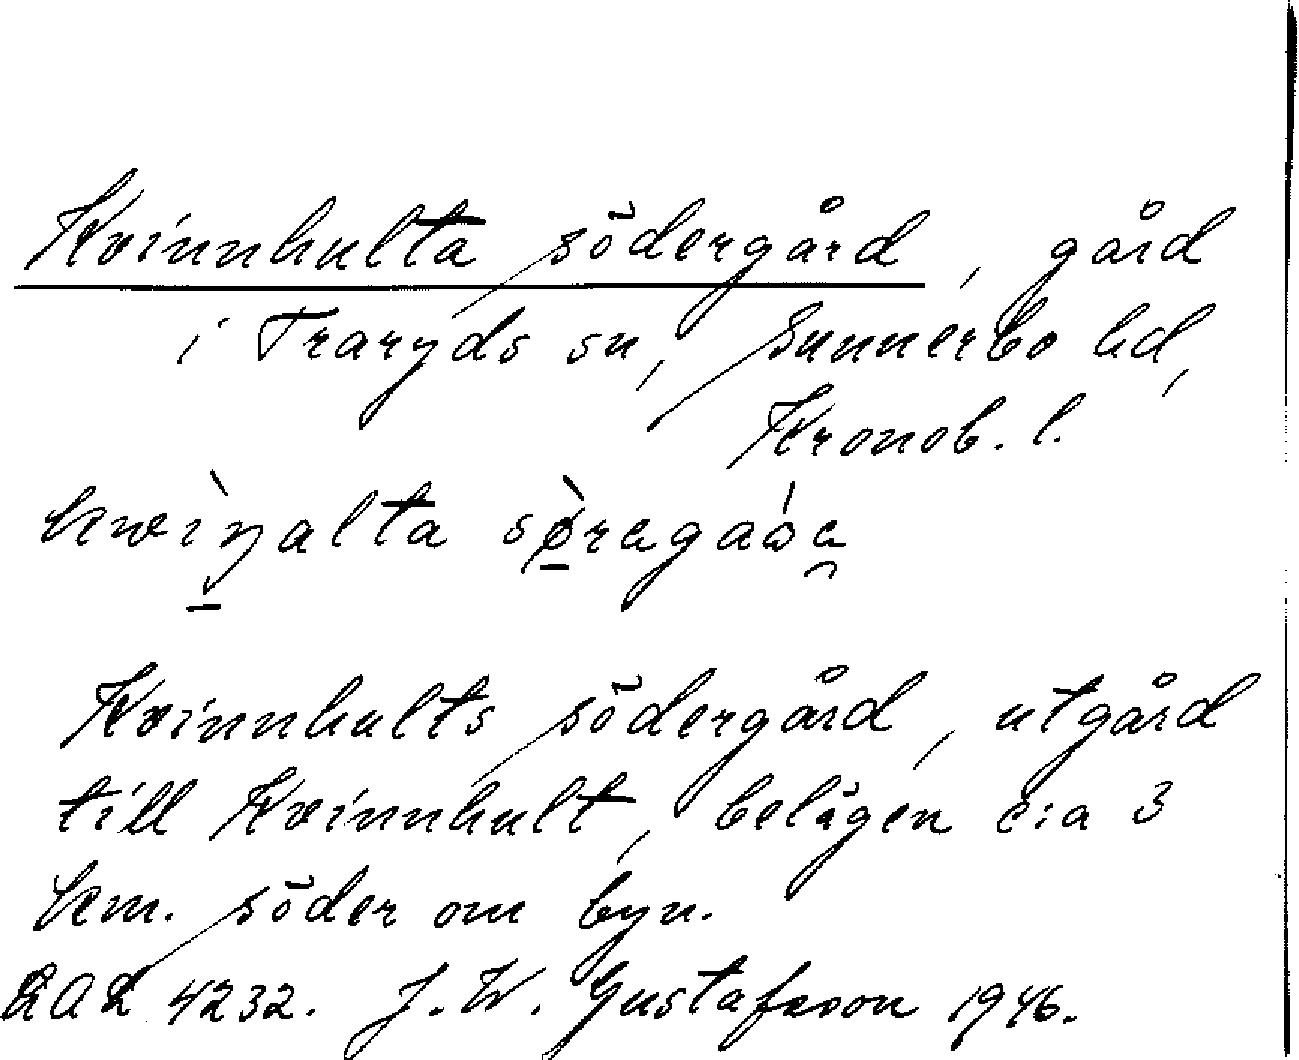 Kvinnhulta södergård, gård
i Traryds sn, Sunnerbo hd,
Kronob. l.
Kvinnhults södergård, utgård
till Kvinnhult, belägen c:a 3
km. söder om byn.
LAL 4232. J. W. Gustafsson 1946.